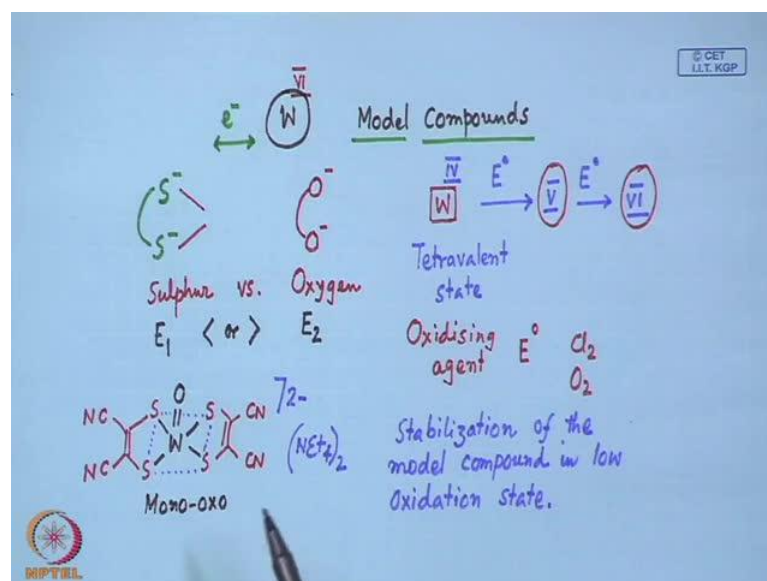 © CET
I.I.T. KGP
VI
W
e⁻
Model Compounds
S⁻
S⁻
O⁻
O⁻
IV
W
E°
V
E°
VI
Tetravalent
state
Sulphur vs. Oxygen
E₁ < or > E₂
Oxidising
agent
E°
Cl₂
O₂
O
NC
S
S
CN
W
NC
S
S
CN
]2-
(NEt₄)₂
Mono-oxo
Stabilization of the
model compound in low
Oxidation state.
NPTEL